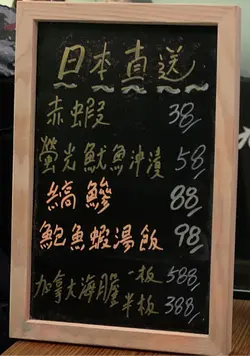 日本直送
赤蝦 38/
螢光魷魚沖漬 58/
縞鰺 88/
鮑魚蝦湯飯 98/
加拿大海膽 一板 588/
半板 388/